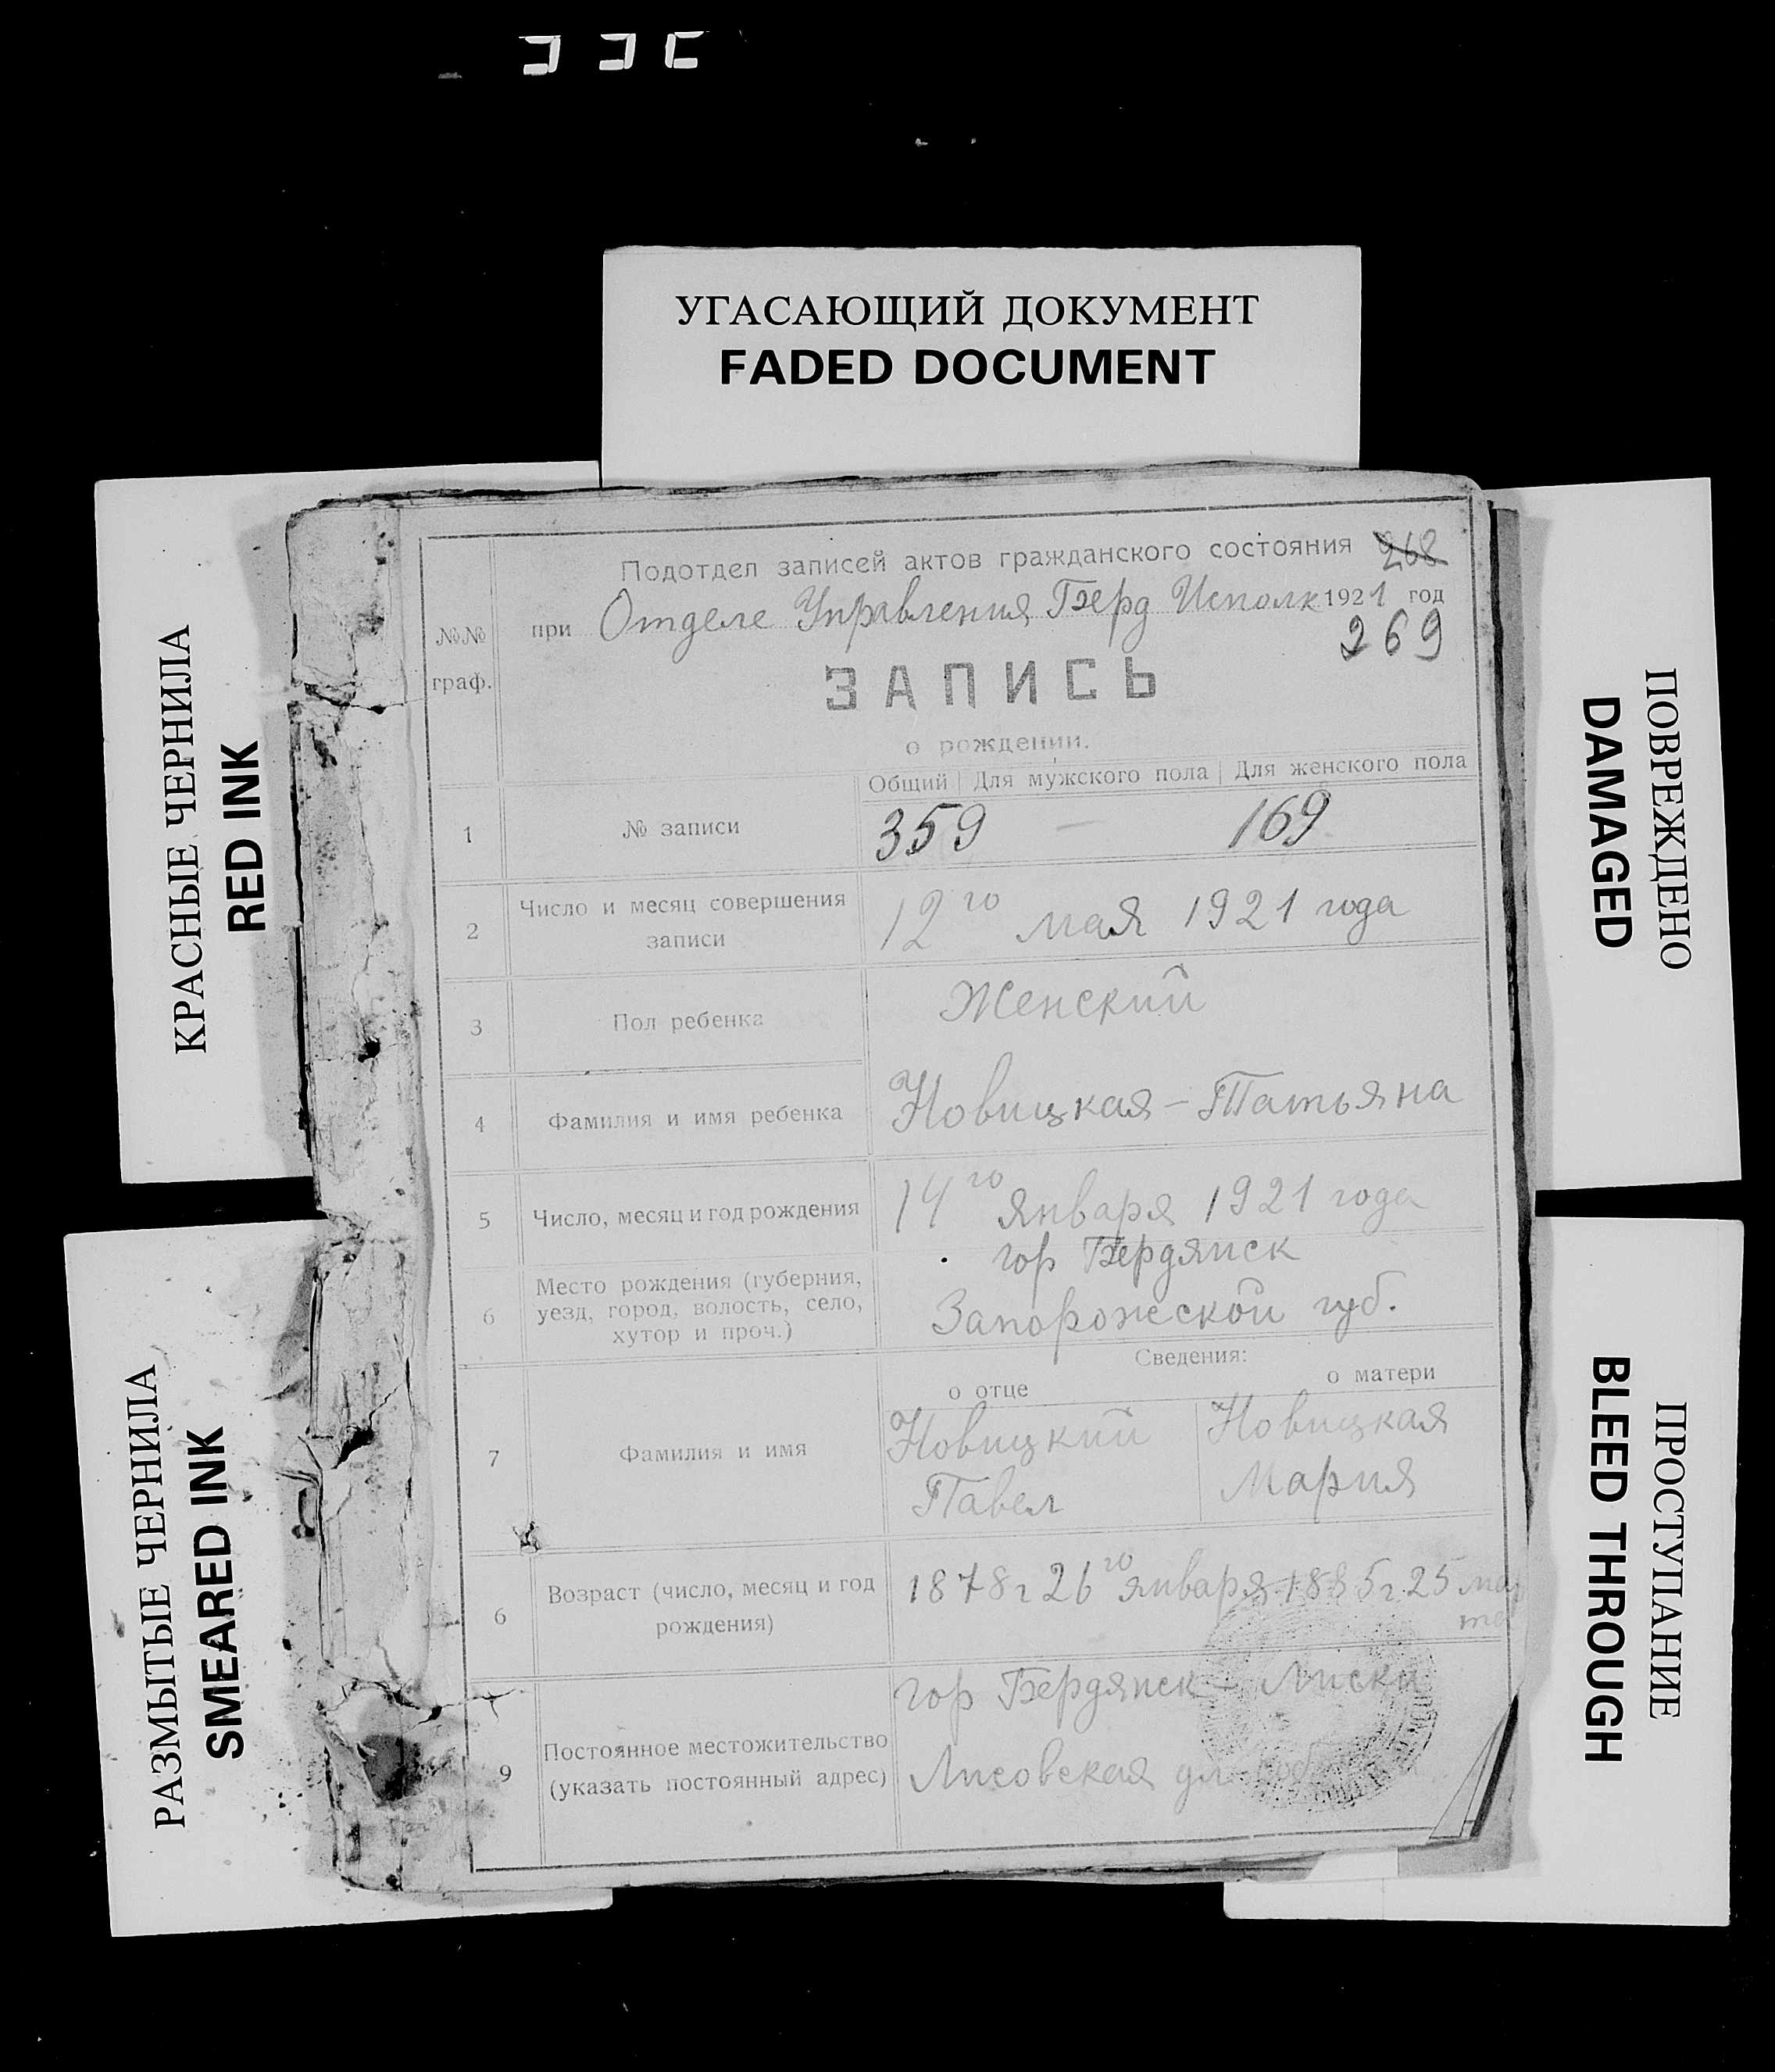 УГАСАЮЩИЙ ДОКУМЕНТ
FADED DOCUMENT
КРАСНЫЕ ЧЕРНИЛА
RED INK
РАЗМЫТЫЕ ЧЕРНИЛА
SMEARED INK
Подотдел записей актов гражданского состояния 268
при Отделе Управления Берд Исполк 1921 год
269
№№
граф.
ЗАПИСЬ
о рождении.
Общий Для мужского пола Для женского пола
1 № записи 359 — 169
2 Число и месяц совершения
записи 12го мая 1921 года
3 Пол ребенка Женский
4 Фамилия и имя ребенка Новицкая - Татьяна
5 Число, месяц и год рождения 14го января 1921 года
гор Бердянск
6 Место рождения (губерния,
уезд, город, волость, село,
хутор и проч.) Запорожеской губ.
Сведения:
о отце о матери
7 Фамилия и имя Новицкий Новицкая
Павел Мария
6 Возраст (число, месяц и год
рождения) 1878г 26го января 1885г 25 мар
та
9 Постоянное местожительство
(указать постоянный адрес) гор Бердянск - Лиски
Лисовская ул
ПОВРЕЖДЕНО
DAMAGED
ПРОСТУПАНИЕ
BLEED THROUGH